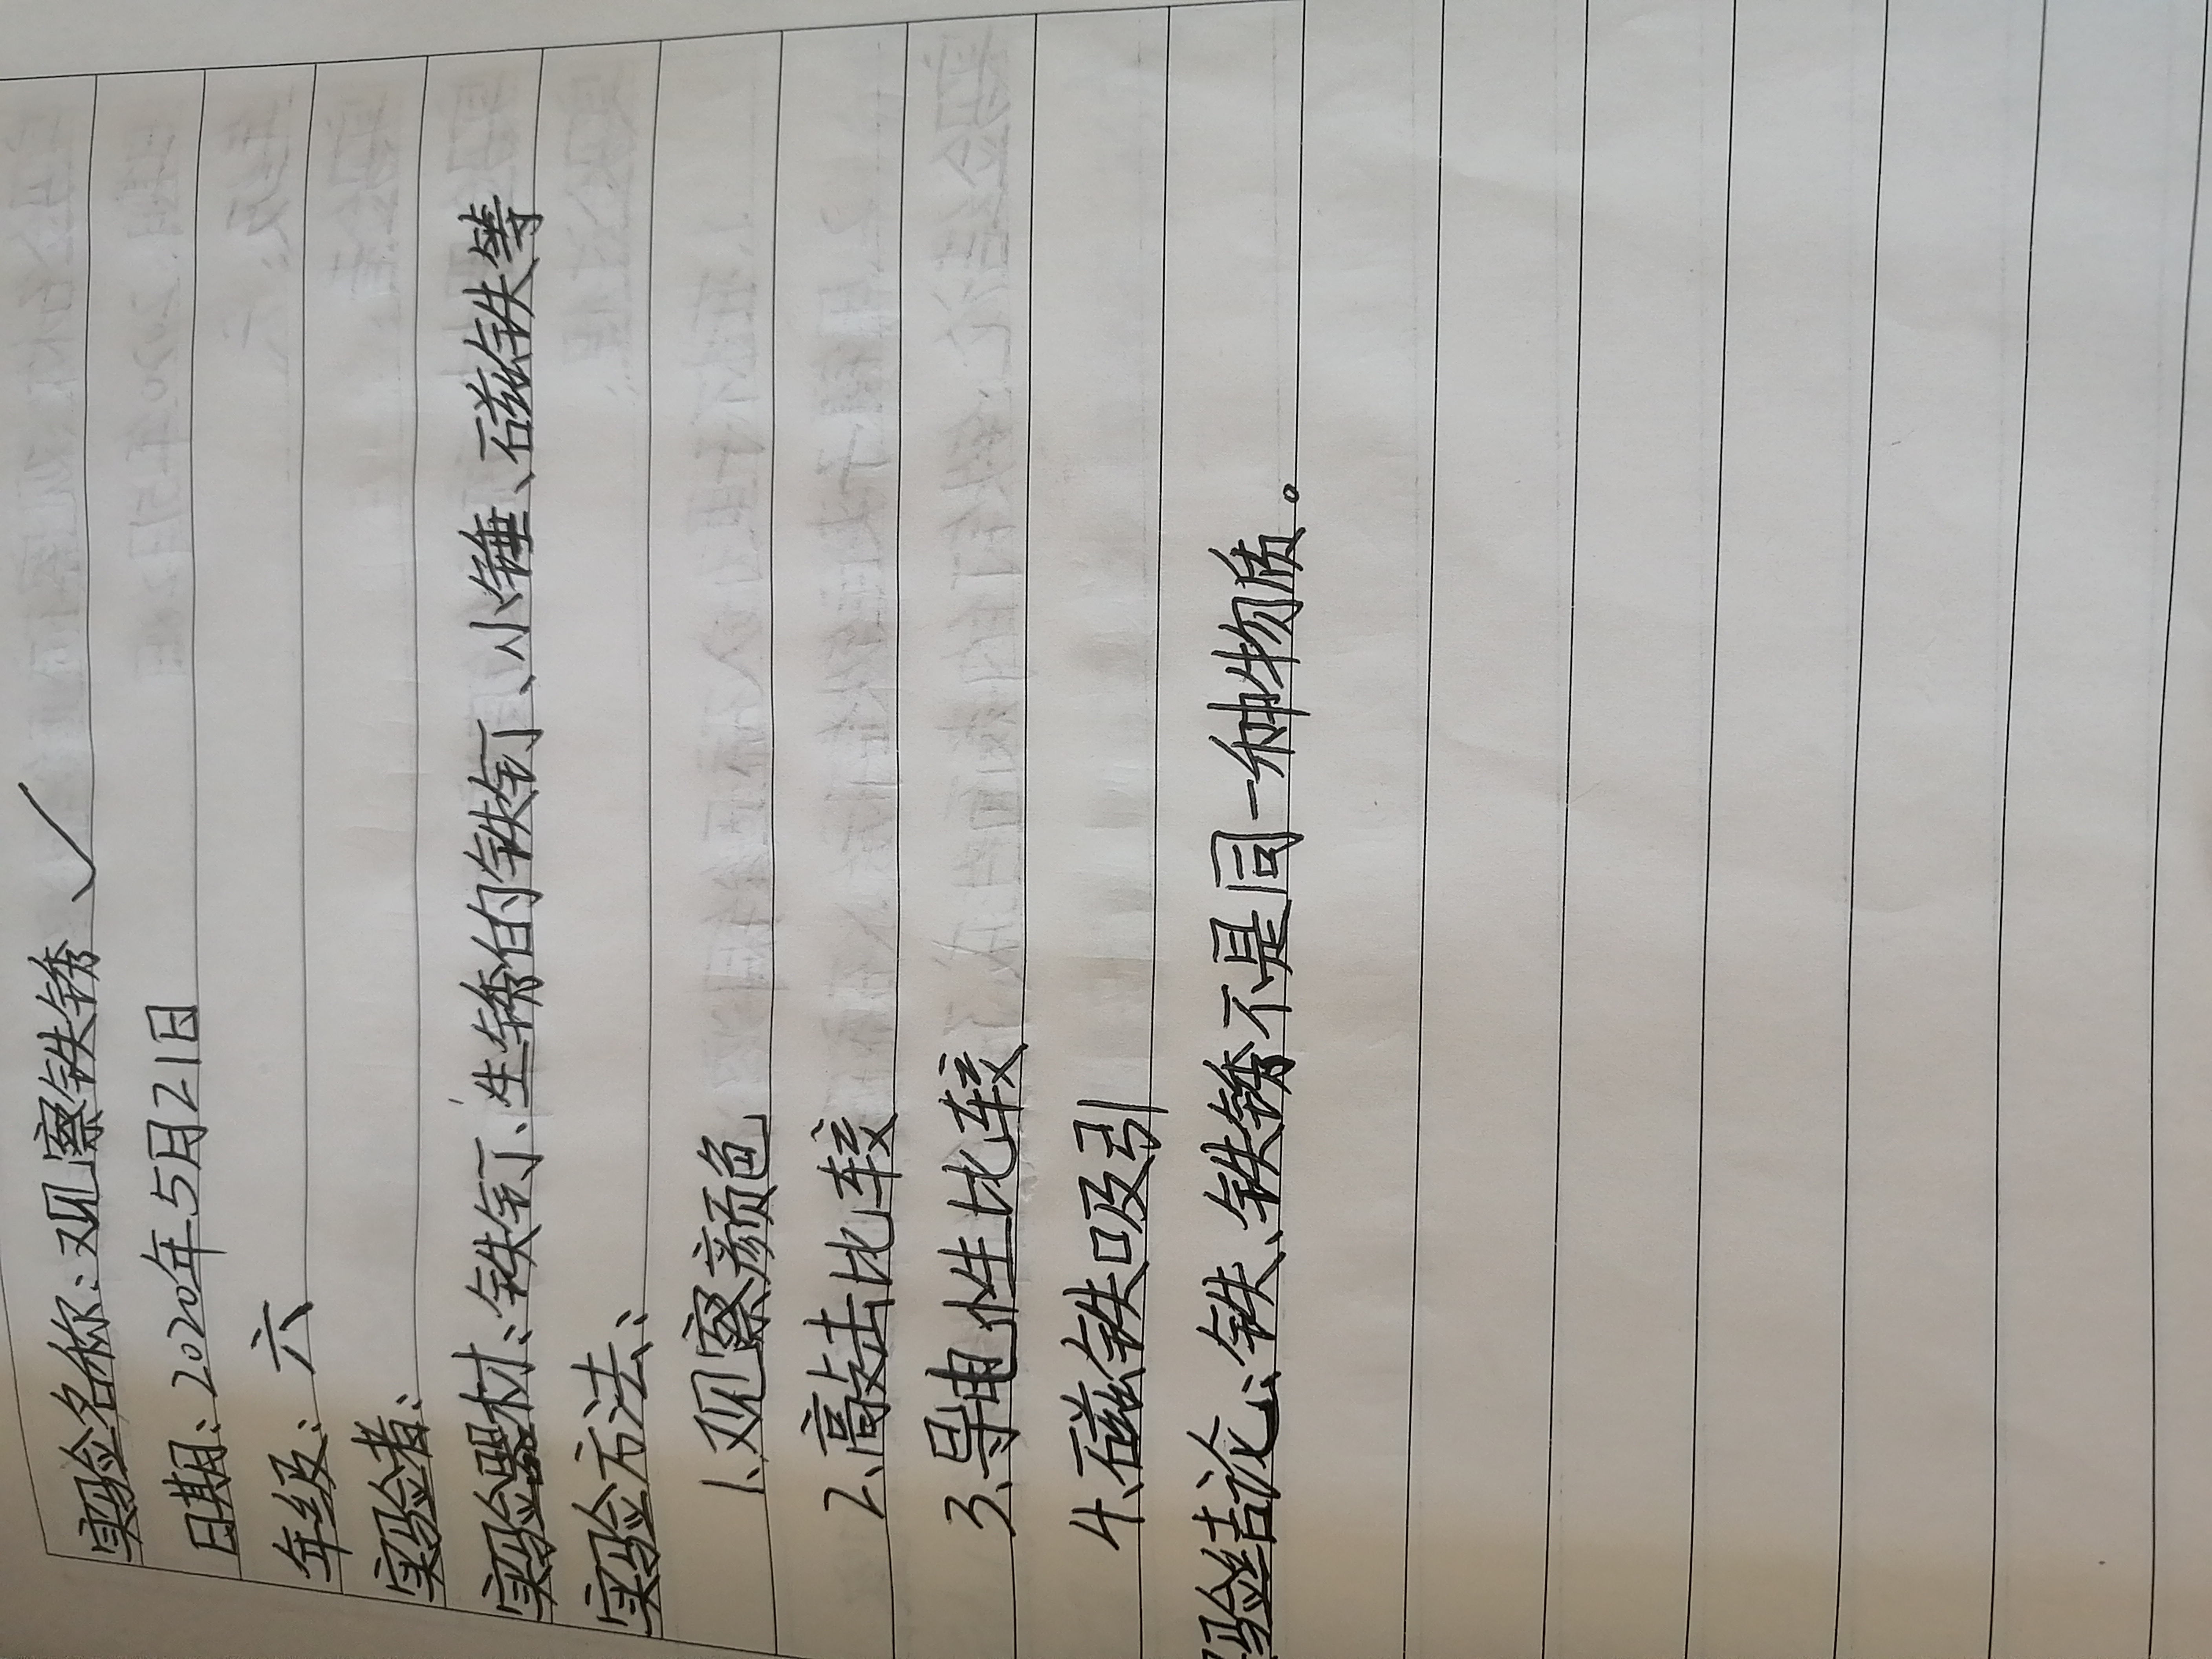 实验名称:观察铁锈 ✓
日期:2020年5月21日
年级:六
实验者:
实验器材:铁钉、生锈的铁钉、小锤、磁铁等
实验方法:
1、观察颜色
2、敲击比较
3、导电性比较
4、磁铁吸引
验结论:铁、铁锈不是同一种物质。